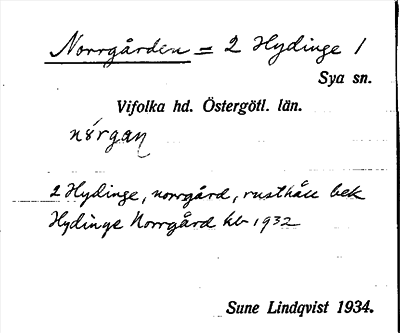 Norrgården = 2 Hydinge 1
Sya sn.
Vifolka hd. Östergötl. län.
nórgaɳ
2 Hydinge, norrgård, rusthåll bek
Hydinge Norrgård kb 1932
Sune Lindqvist 1934.